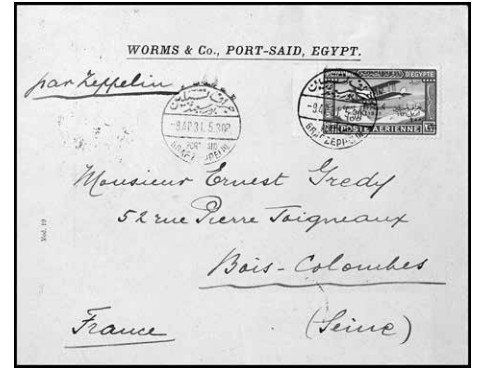 WORMS & Co., PORT-SAID, EGYPT.
par Zeppelin
-9 AP.31. 5.30P
PORT SAID
GRAF ZEPPELIN
D'EGYPTE
-9 AP
POSTE AÉRIENNE
GRAF ZEPPELIN
Monsieur Ernest Gredy
52 rue Pierre Joigneaux
Bois-Colombes
France
(Seine)
Mod. 19